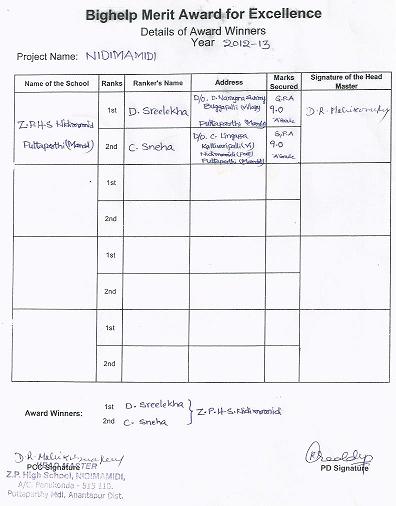 Bighelp Merit Award for Excellence
Details of Award Winners
Year 2012-13
Project Name: NIDIMAMIDI
Name of the School Ranks Ranker's Name Address Marks Secured Signature of the Head Master
Z.P.H.S Nidimamidi
Puttaparthi (Mandal)
1st D. Sreelekha
D/o. D. Narayana Swamy
Buggapalli (Village)
Puttaparthi (Mandal)
G.P.A
9.0
'A' Grade
2nd C. Sneha
D/o. C. Lingappa
Nidimamidi (Post)
Puttaparthi (Mandal)
G.P.A
9.0
'A' Grade
1st
2nd
1st
2nd
1st
2nd
Award Winners: 1st D. Sreelekha
2nd C. Sneha
Z.P.H.S. Nidimamidi
PCC Signature
HEAD MASTER
Z.P. High School, NIDIMAMIDI,
A/C. Penukonda - 515 110.
Puttaparthy Mdl, Anantapur Dist.
PD Signature